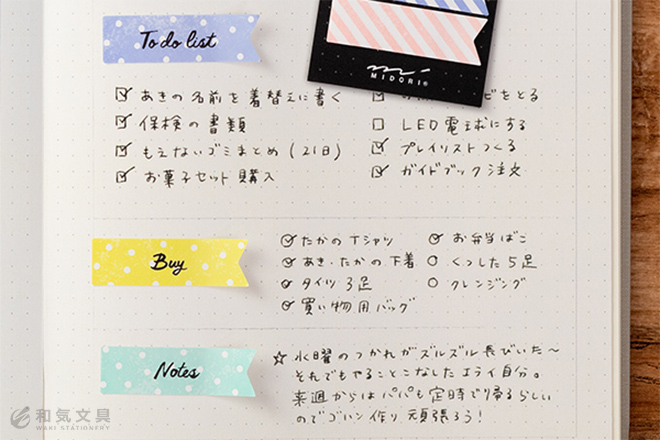 To do list
MIDORI®
あきの名前を着替えに書く
をとる
保検の書類
LED電球にする
もえないゴミまとめ(21日)
プレイリストつくる
お菓子セット購入
ガイドブック注文
Buy
たかのTシャツ
お弁当ばこ
あき・たかの下着
くつした5足
タイツ3足
クレンジング
買い物用バッグ
Notes
☆水曜のつかれがズルズル長びいた〜
それでもやることこなしたエライ自分。
来週からはパパも定時で帰るらしい
のでゴハン作り頑張ろう!
和気文具
WAKI STATIONERY